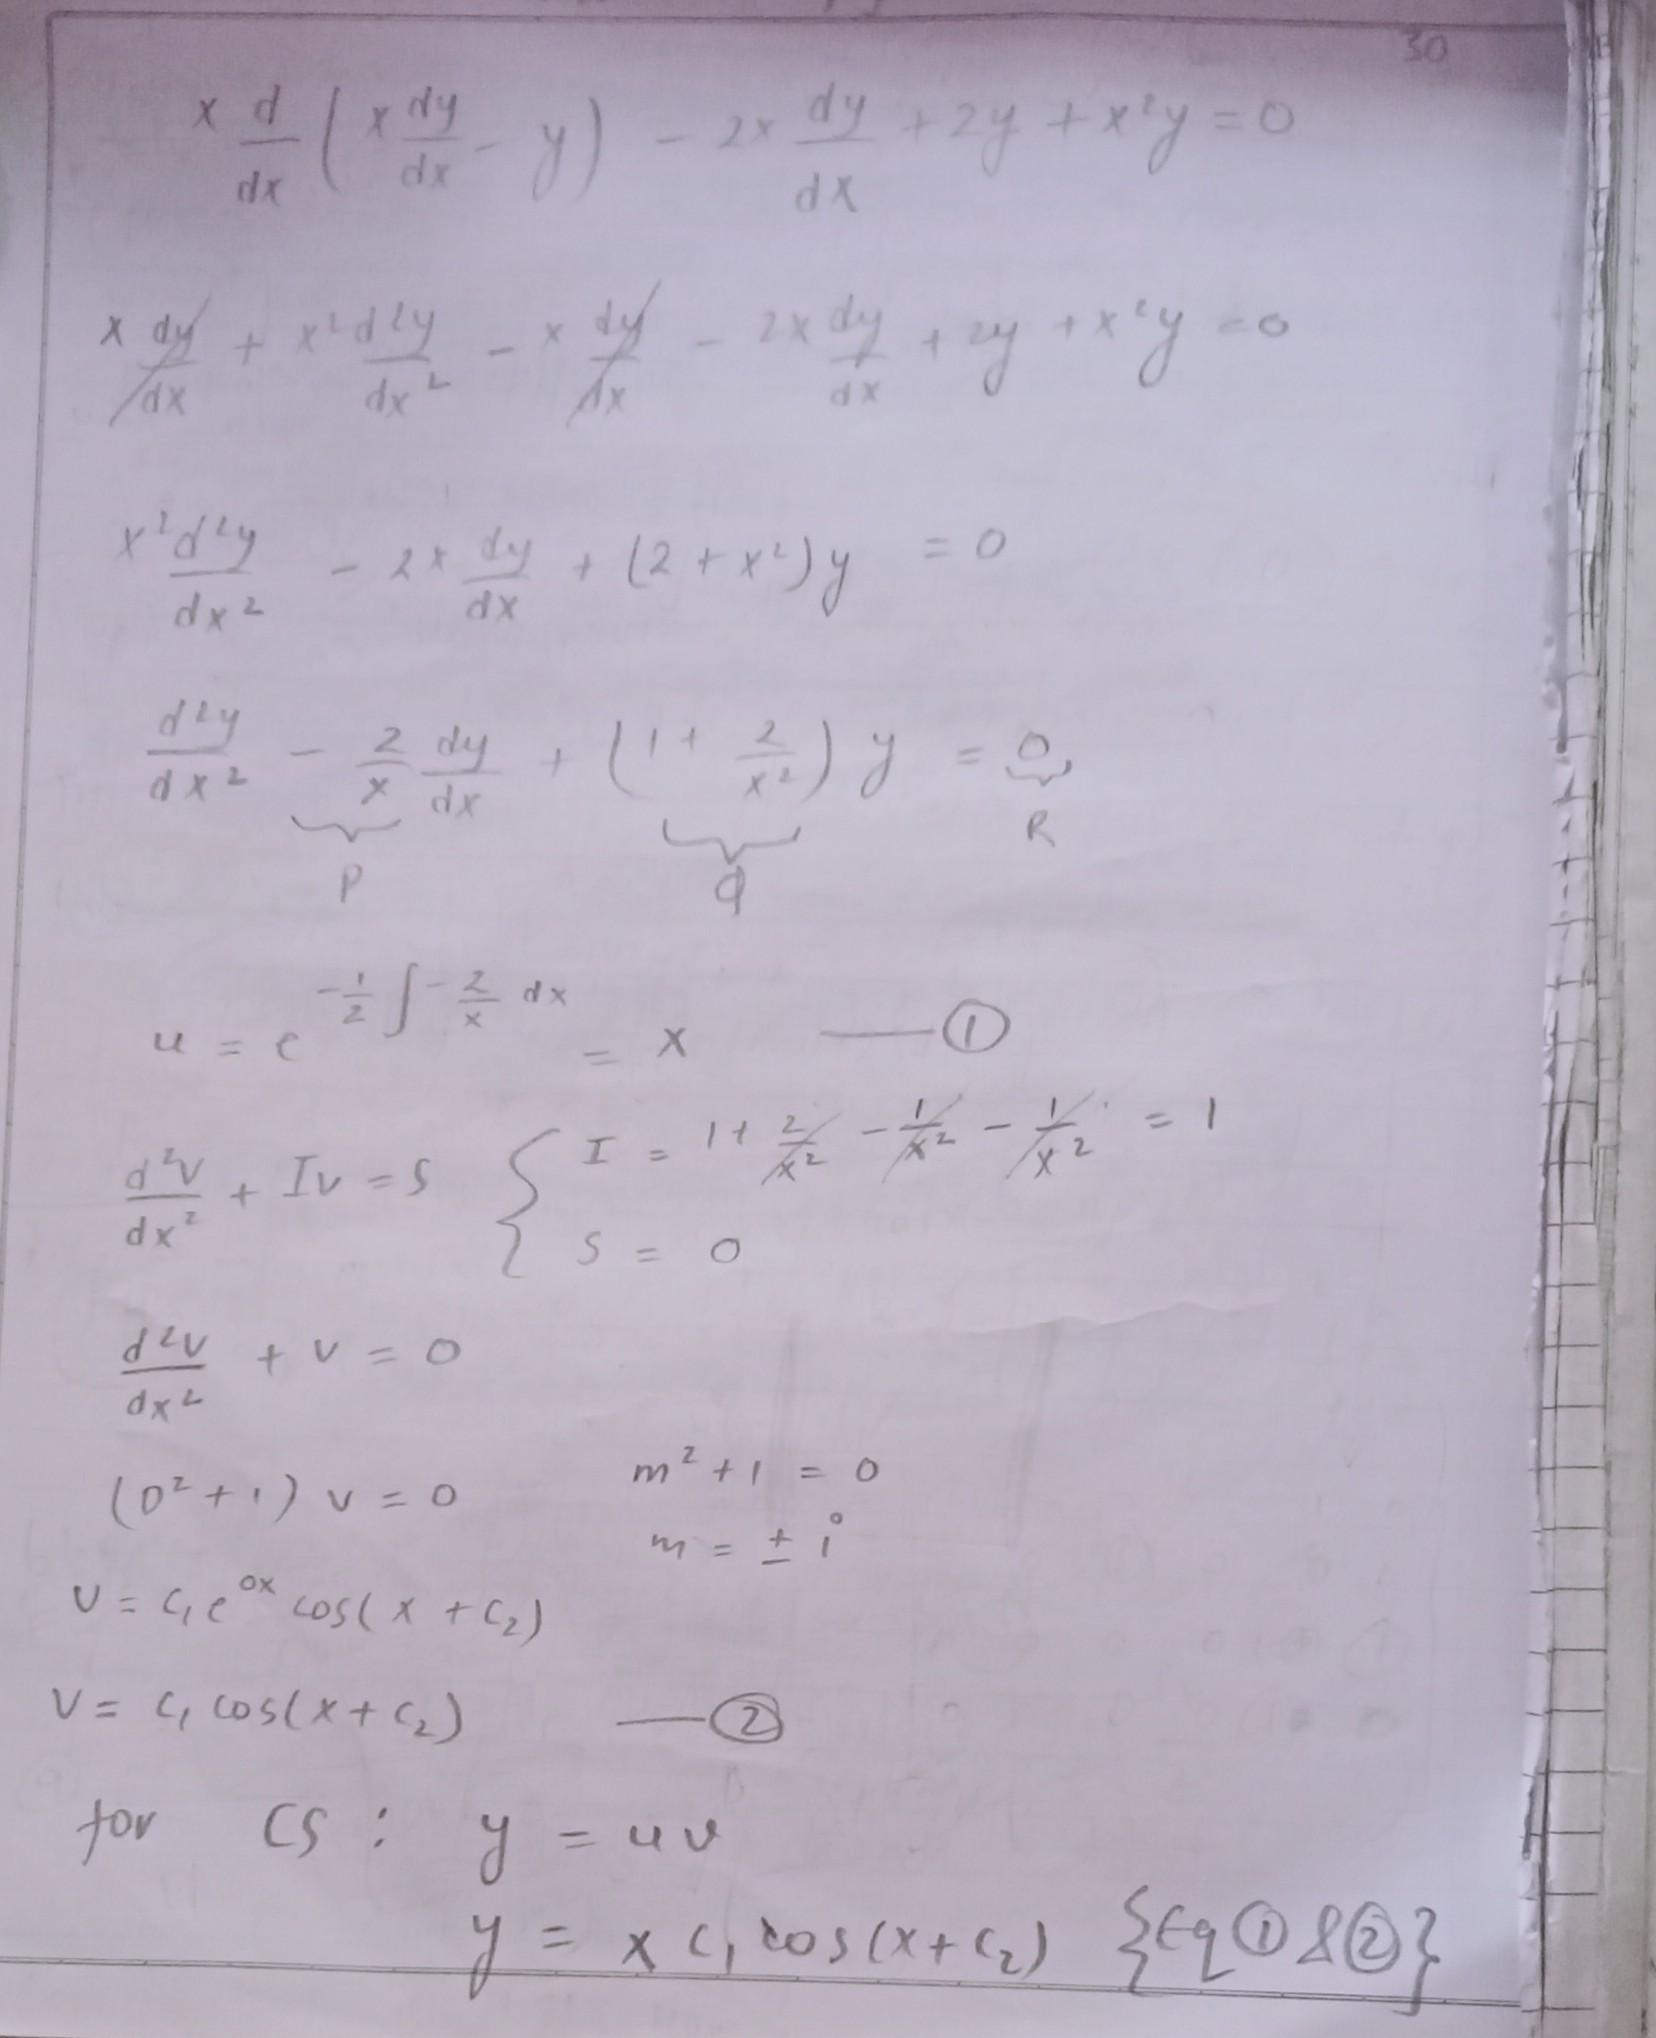 30
x d/dx (x dy/dx - y) - 2x dy/dx + 2y + x²y = 0
x dy/dx + x² d²y/dx² - x dy/dx - 2x dy/dx + 2y + x²y = 0
x² d²y/dx² - 2x dy/dx + (2 + x²)y = 0
d²y/dx² - 2/x dy/dx + (1 + 2/x²) y = 0,
P Q R
u = e^(-1/2 ∫ -2/x dx) = x —①
d²v/dx² + Iv = S { I = 1 + 2/x² - 1/x² - 1/x² = 1
S = 0
d²v/dx² + v = 0
(D² + 1) v = 0 m² + 1 = 0
m = ± i
v = c₁e^(0x) cos(x + c₂)
v = c₁ cos(x + c₂) —②
for CS : y = uv
y = x c₁ cos(x + c₂) {Eq ① & ②}